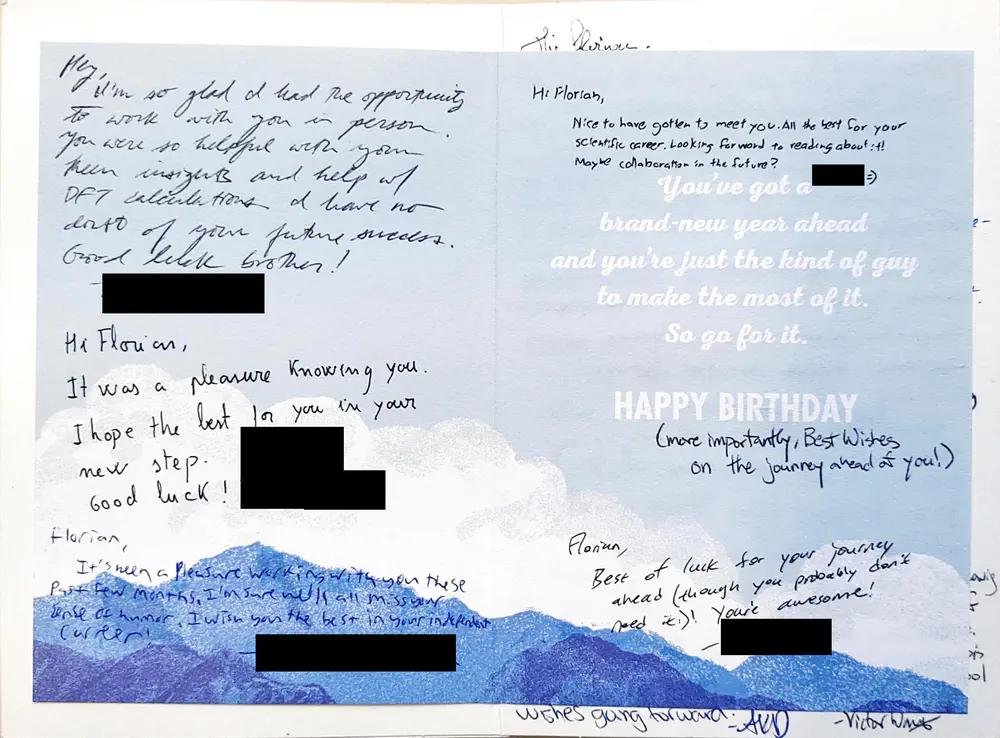 Hey,
I'm so glad I had the opportunity
to work with you in person.
You were so helpful with your
keen insights and help w/
DFT calculations I have no
doubt of your future success.
Good luck brother!
Hi Florian,
It was a pleasure knowing you.
I hope the best for you in your
new step.
Good luck!
Florian,
It's been a pleasure working with you these
past few months. I'm sure we'll all miss your
sense of humor. I wish you the best in your independent
career!
Hi Florian,
Nice to have gotten to meet you. All the best for your
scientific career. Looking forward to reading about it!
Maybe collaboration in the future?
=)
You've got a
brand-new year ahead
and you're just the kind of guy
to make the most of it.
So go for it.
HAPPY BIRTHDAY
(more importantly, Best Wishes
on the journey ahead of you!)
Florian,
Best of luck for your journey
ahead (though you probably don't
need it:)! You're awesome!
wishes going forward.
-Victor